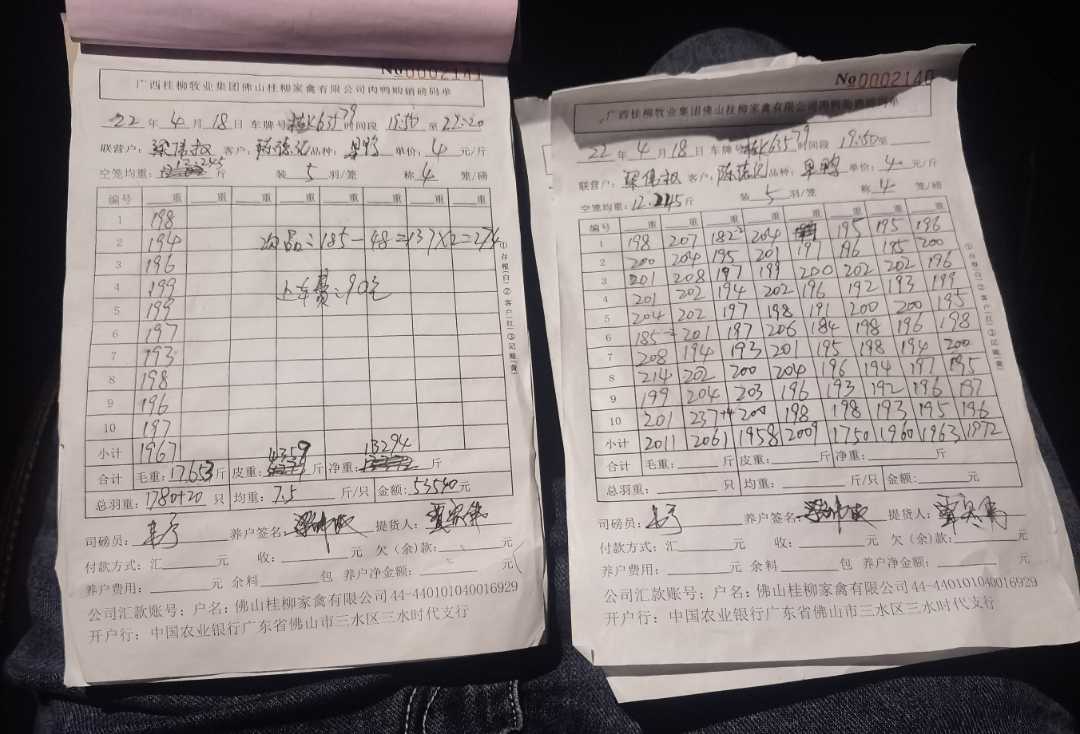 No0002141
广西桂柳牧业集团佛山桂柳家禽有限公司肉鸭购销磅码单
22 年 4 月 18 日 车牌号 时间段 19:50 至 22:20
联营户: 客户: 品种: 单价: 4 元/斤
空笼均重: 12.245 斤 装 5 羽/笼 称 4 笼/磅
编号 重 重 重 重 重 重 重 重
1 198
2 194 次品:185-48=137×2=274
3 196
4 199 上车费:90元
5 199
6 197
7 193
8 198
9 196
10 197
小计 1967
合计 毛重:17653 斤 皮重: 4359 斤 净重: 13294 斤
总羽重:1780+20 只 均重: 7.5 斤/只 金额:53540 元
司磅员: 养户签名: 提货人:
付款方式:汇 元 收: 元 欠(余)款: 元
养户费用: 元 余料 包 养户净金额: 元
公司汇款账号:户名:佛山桂柳家禽有限公司44-440101040016929
开户行:中国农业银行广东省佛山市三水区三水时代支行
①存根(白)②客户(红)③记账(黄)
No0002140
广西桂柳牧业集团佛山桂柳家禽有限公司肉鸭购销磅码单
22 年 4 月 18 日 车牌号 时间段 19:50 至
联营户: 客户: 品种: 单价: 4 元/斤
空笼均重: 12.245 斤 装 5 羽/笼 称 4 笼/磅
编号 重 重 重 重 重 重 重 重
1 198 207 182 204 195 195 196
2 200 204 195 201 191 196 195 200
3 201 208 197 199 200 202 202 196
4 201 202 194 202 196 192 193 199
5 204 202 197 198 191 200 200 195
6 185 201 197 206 184 198 196 198
7 208 194 193 201 195 198 194 200
8 214 202 200 204 196 194 197 195
9 199 204 203 196 193 192 196 197
10 201 237+4 200 198 198 193 195 196
小计 2011 2061 1958 2009 1750 1960 1963 1972
合计 毛重: 斤 皮重: 斤 净重: 斤
总羽重: 只 均重: 斤/只 金额: 元
司磅员: 养户签名: 提货人:
付款方式:汇 元 收: 元 欠(余)款: 元
养户费用: 元 余料 包 养户净金额: 元
公司汇款账号:户名:佛山桂柳家禽有限公司44-440101040016929
开户行:中国农业银行广东省佛山市三水区三水时代支行
①存根(白)②客户(红)③记账(黄)